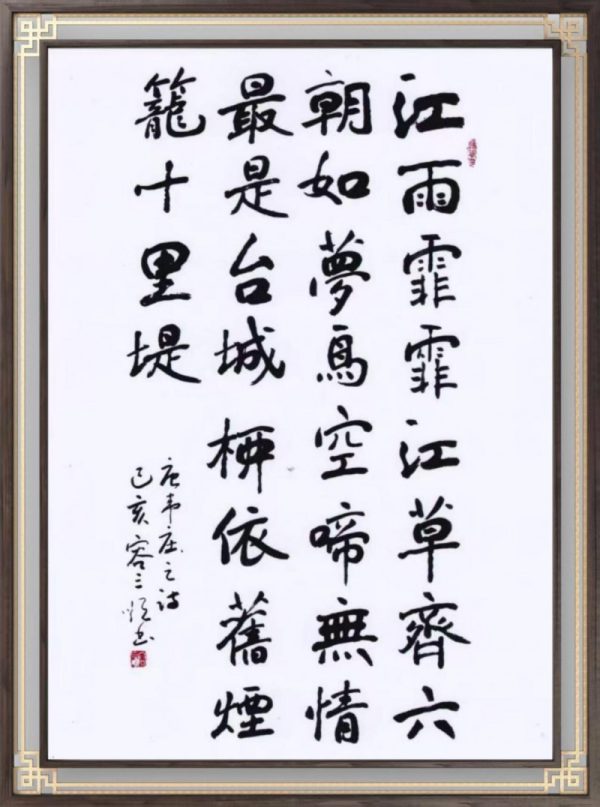 江雨霏霏江草齊六
朝如夢鳥空啼無情
最是台城柳依舊煙
籠十里堤
唐韦庄之诗
己亥容三书